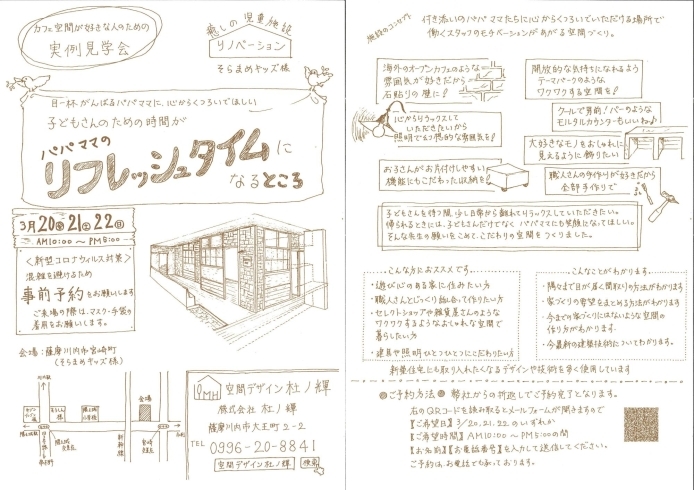 カフェ空間が好きな人のための
実例見学会
癒しの児童施設
リノベーション
そらまめキッズ様
目一杯がんばるパパママに、心からくつろいでほしい
子どもさんのための時間が
パパママの
リフレッシュタイムに
なるところ
3月20㊎21㊏22㊐
AM10:00~PM5:00
<新型コロナウィルス対策>
混雑を避けるため
事前予約をお願いします
ご来場の際は、マスク・手袋の
着用をお願いします。
会場:薩摩川内市宮崎町
(そらまめキッズ様)
会場
空間デザイン杜ノ輝
株式会社 杜ノ輝
薩摩川内市大王町2-2
TEL 0996-20-8841
空間デザイン杜ノ輝 検索
施設のコンセプト
付き添いのパパママたちに心からくつろいでいただける場所で
働くスタッフのモチベーションがあがる空間づくり。
海外のオープンカフェのような
雰囲気が好きだから
石貼りの壁に!
開放的な気持ちになれるよう
テーマパークのような
ワクワクする空間を!
心からリラックスして
いただきたいから
照明で幻想的な雰囲気を!
クールで男前!バーのような
モルタルカウンターもいいね♪
大好きなモノをおしゃれに
見えるように飾りたい
お子さんがお片付けしやすい
機能にもこだわった収納を!
職人さんの手作りが好きだから
全部手作りで
子どもさんを待つ間、少し日常から離れてリラックスしていただきたい。
帰られるときには、子どもさんだけでなく パパママも笑顔になってほしい。
そんな先生の願いをこめて、こだわりの空間をつくりました。
こんな方におススメです
・遊び心のある家に住みたい方
・職人さんとじっくり話し合って作りたい方
・セレクトショップや雑貨屋さんのような
ワクワクするようなおしゃれな空間で
暮らしたい方
・建具や照明ひとつひとつにこだわりたい方
こんなことがわかります
・隅々まで目が届く間取りの方法がわかります
・家づくりの希望をまとめる方法がわかります
・今までの家づくりにはないような空間の
作り方がわかります
・今最新の建築技術についてわかります。
新築住宅にも取り入れたくなるデザインや技術を多く使用しています
◎ご予約方法◎ 弊社からの折返しでご予約完了となります。
右のQRコードを読み取るとメールフォームが開きますので
【ご希望日】3/20,21,22のいずれか
【ご希望時間】AM10:00~PM5:00の間
【お名前】【お電話番号】を入力して送信してください。
ご予約は、お電話でも承っております。